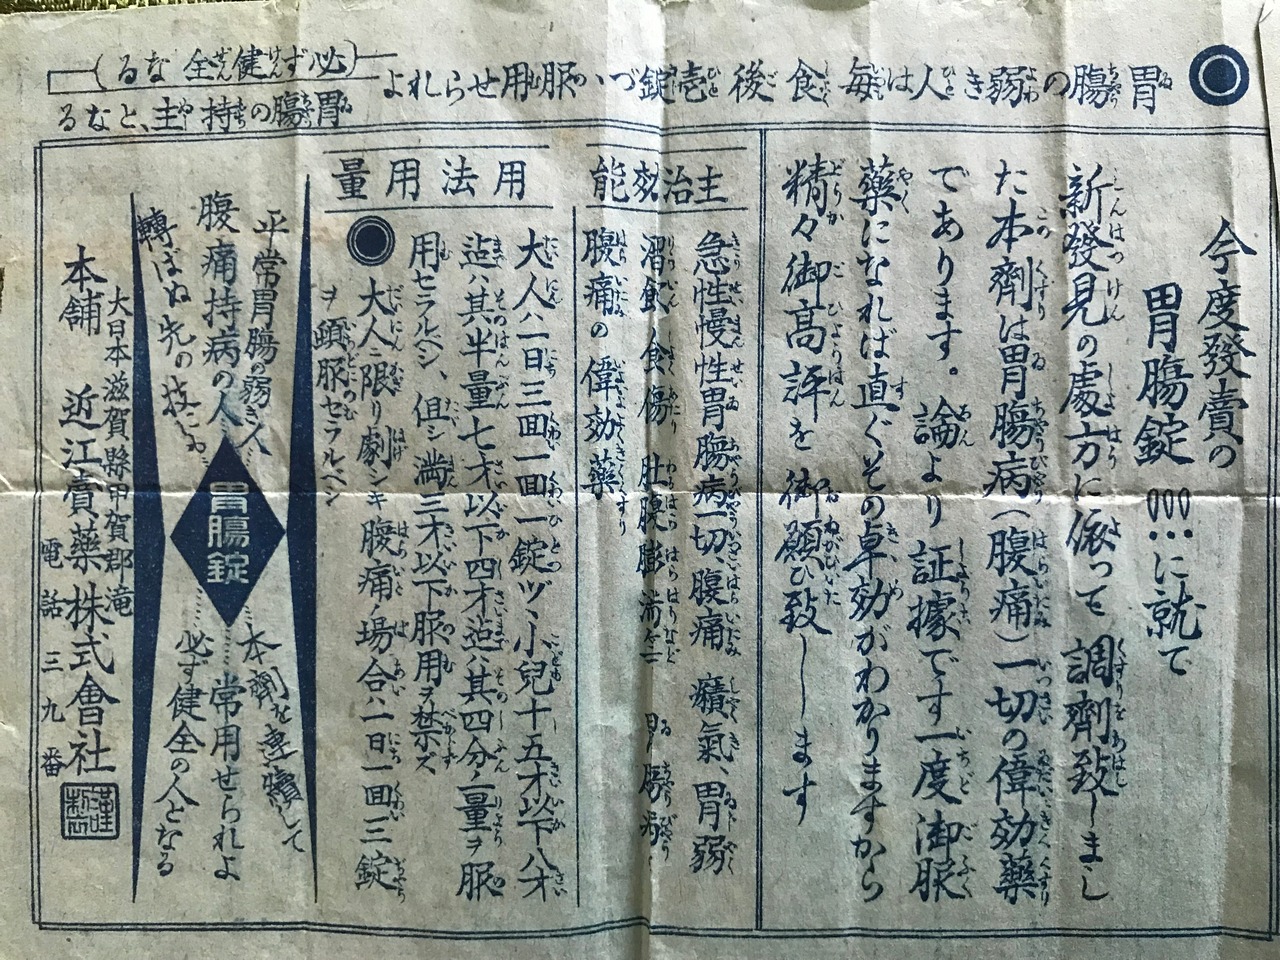 ◉胃腸の弱き人は毎食後壱錠づゝ服用せられよ
(必ず健全なる
胃腸の持主となる
今度發賣の
胃腸錠!!!に就て
新發見の處方に依って調劑致しまし
た本劑は胃腸病(腹痛)一切の偉効藥
であります。論より証據です一度御服
藥になれば直ぐその卓効がわかりますから
精々御高評を御願ひ致します
主治効能
急性慢性胃腸病一切、腹痛 癪氣、胃弱
溜飲 食傷 肚腹膨満
腹痛の偉効藥
用法用量
大人ハ一日三回一回一錠ヅヽ小兒十五才以下八才
迠ハ其半量七才以下四才迠ハ其四分ノ一量ヲ服
用セラルベシ、但シ満三才以下服用ヲ禁ズ
◉大人ニ限リ劇シキ腹痛ノ場合ハ一日一回三錠
ヲ頓服セラルベシ
平常胃腸の弱き人
腹痛持病の人
轉ばぬ先の杖に
胃腸錠
本劑を連續して
常用せられよ
必ず健全の人となる
大日本滋賀縣甲賀郡滝
本舗 近江賣藥株式會社
電話三九番